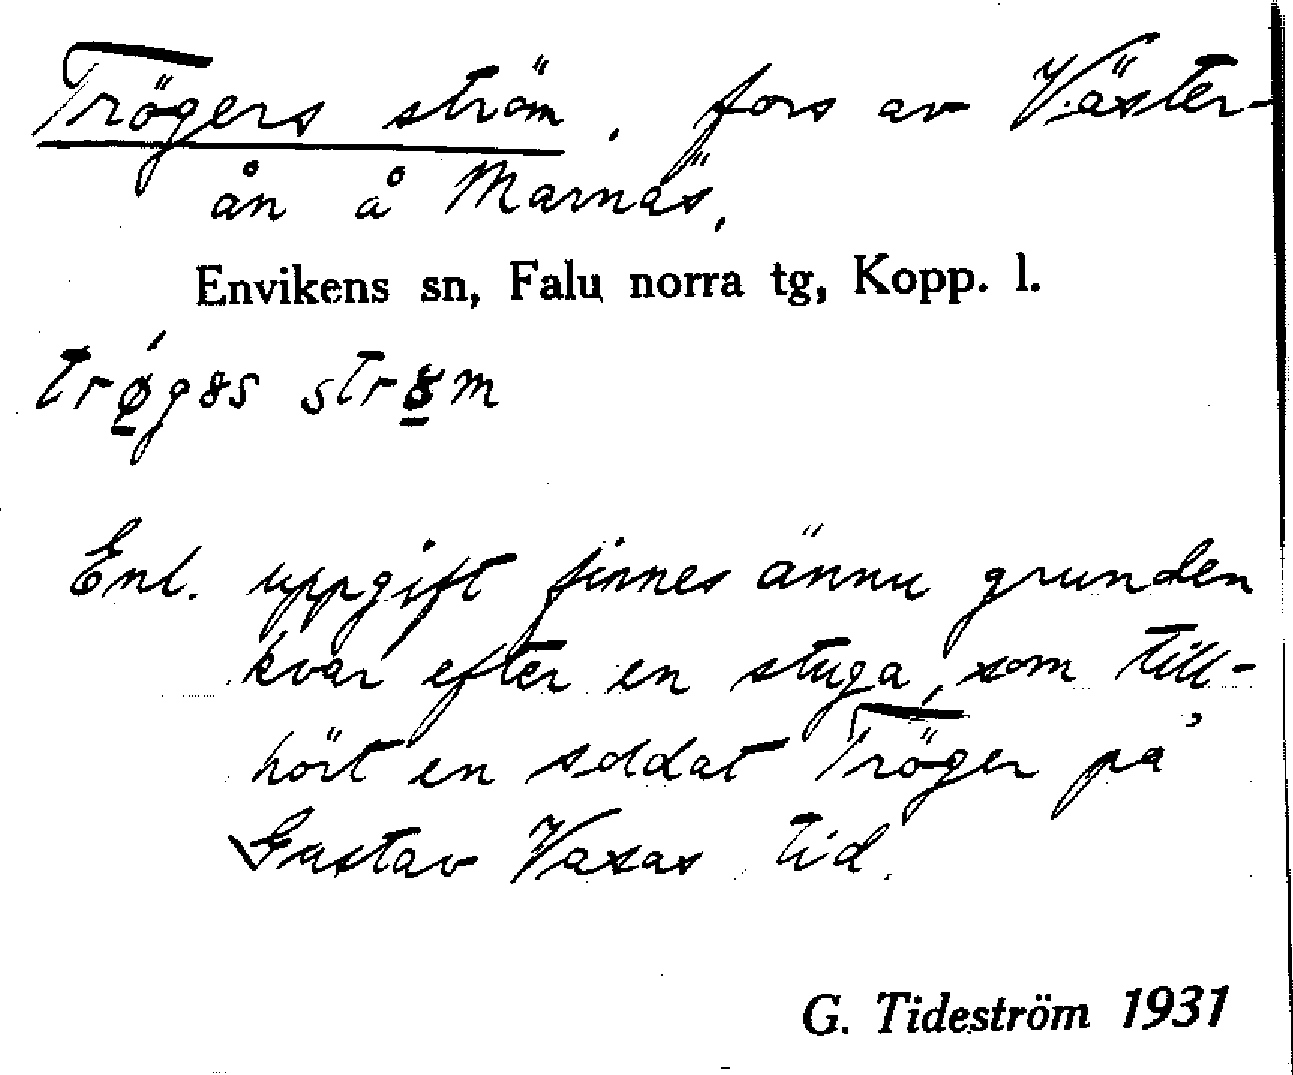 Trögers ström, fors av Väster-
ån å Marnäs.
Envikens sn, Falu norra tg, Kopp. l.
trǿ̱gəs strɣ̱m
Enl. uppgift finnes ännu grunden
kvar efter en stuga, som till-
hört en soldat Tröger på
Gustav Vasas tid.
G. Tideström 1931